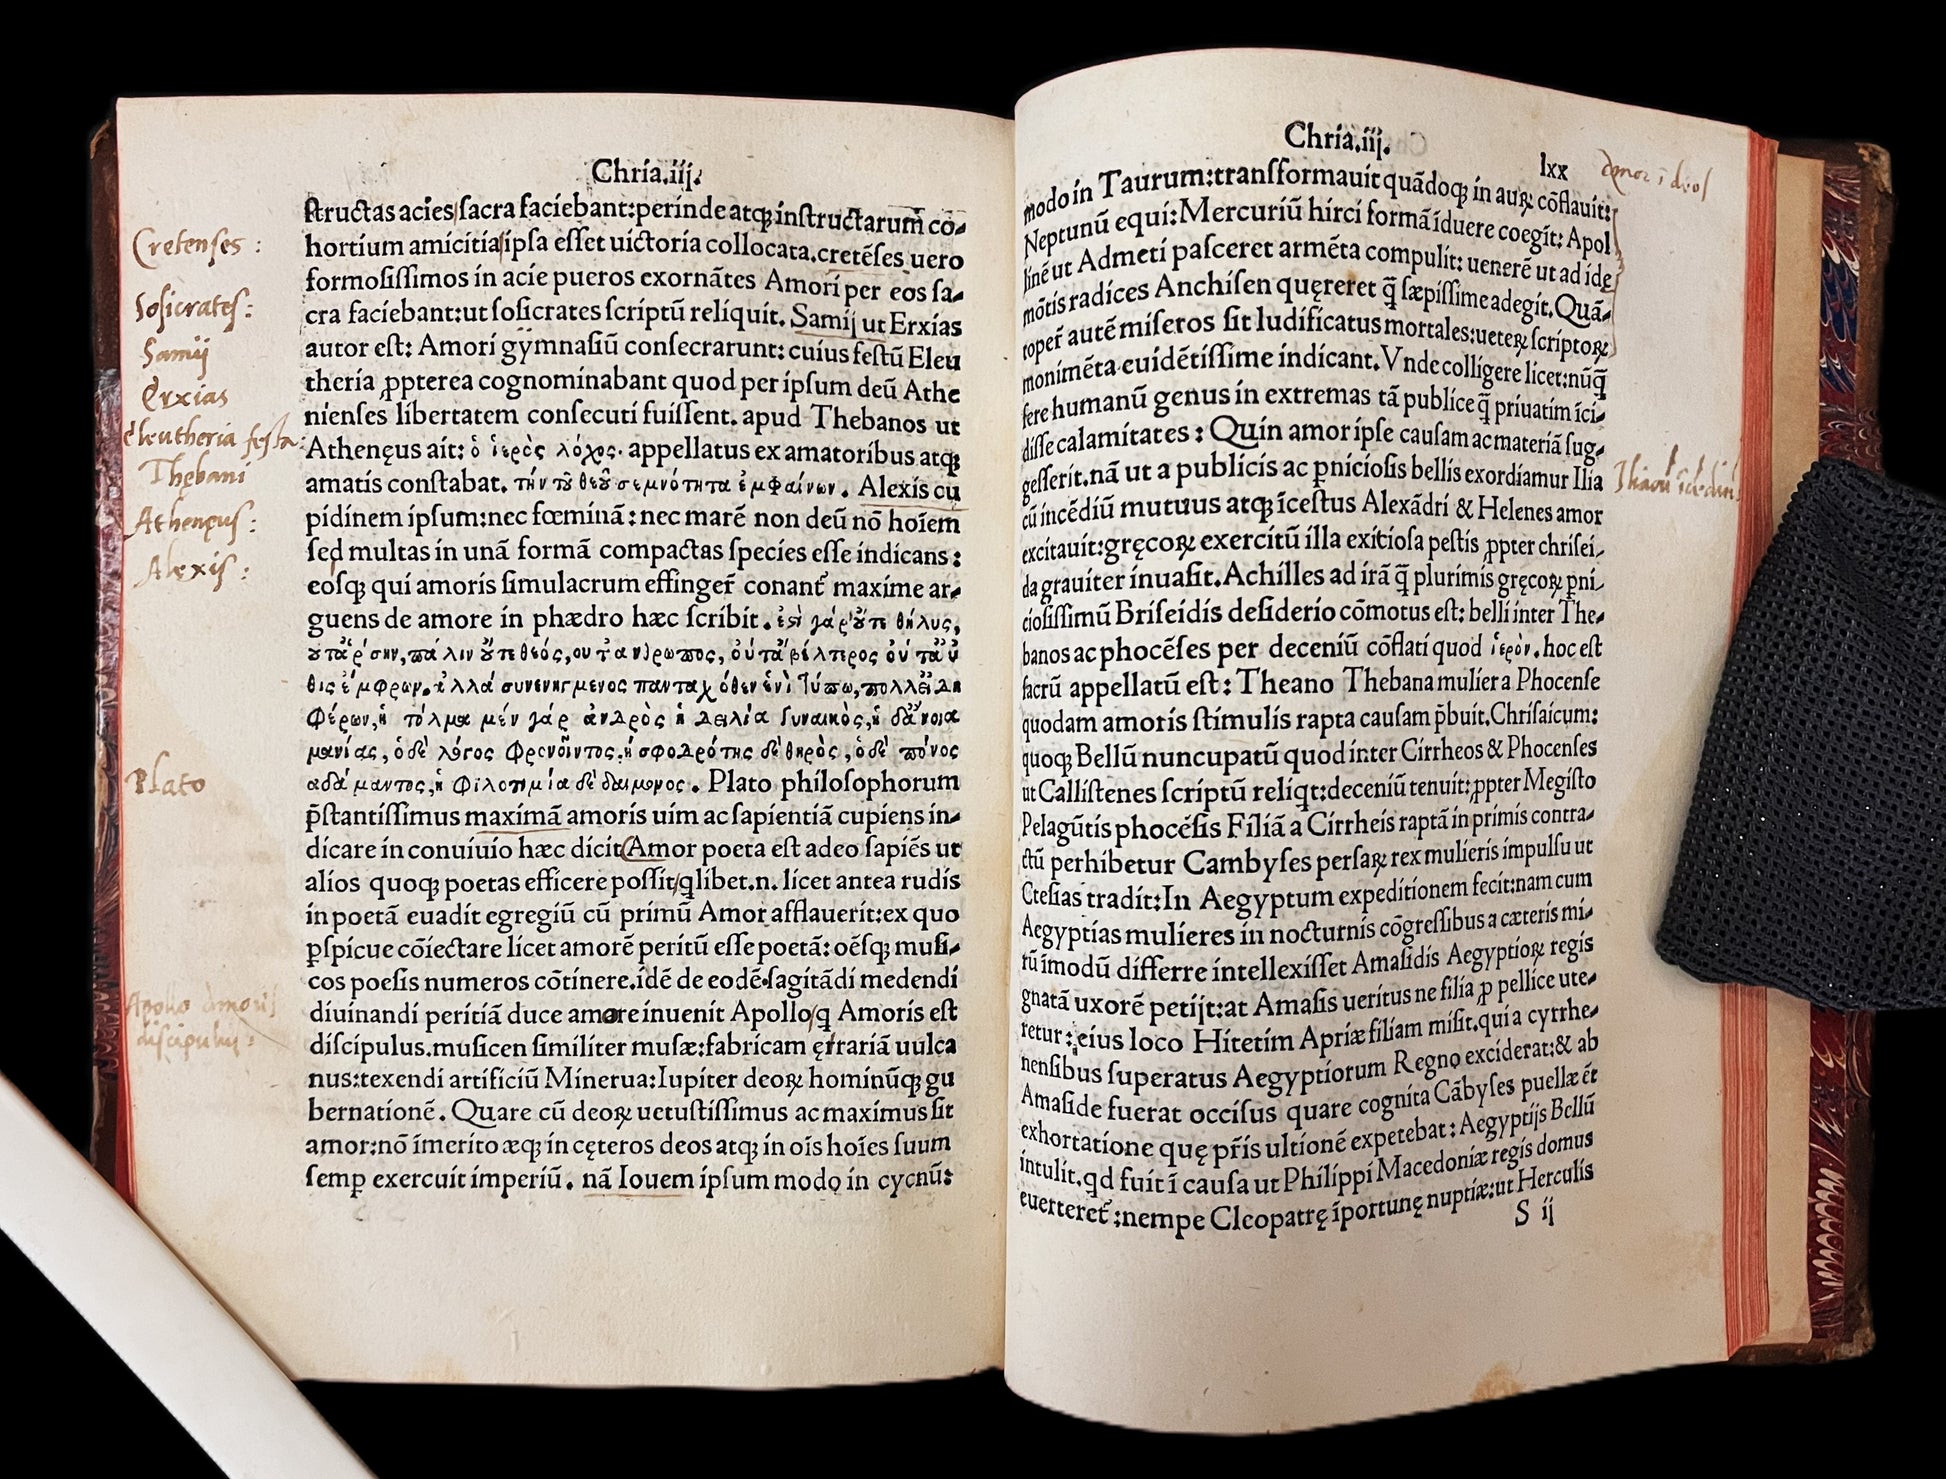 Chria.iij.
ſtructas acies/ſacra faciebant:perinde atqꝫ inſtructarum̄ co-
hortium amicitia/ipſa eſſet uictoria collocata.cretēſes uero
formoſiſſimos in acie pueros exornātes Amori per eos ſa-
cra faciebant:ut ſoſicrates ſcriptū reliquit. Samij ut Erxias
autor eſt: Amori gymnaſiū conſecrarunt: cuius feſtū Eleu
theria ꝓpterea cognominabant quod per ipſum deū Athe
nienſes libertatem conſecuti fuiſſent. apud Thebanos ut
Athenęus ait: ὁ ἱερὸς λόχος. appellatus ex amatoribus atqꝫ
amatis conſtabat. τὴν τοῦ θεοῦ σεμνότητα ἐμφαίνων. Alexis cu
pidinem ipſum:nec fœminā: nec marē non deū nō hoīem
ſed multas in unā formā compactas ſpecies eſſe indicans:
eoſqꝫ qui amoris ſimulacrum effinger̄ conant̄ maxime ar-
guens de amore in phædro hæc ſcribit. ἐστὶ γάρ οὔτε θῆλυς,
οὔτ' ἄρσην, πάλιν οὔτε θεός, οὔτ' ἄνθρωπος, οὔτ' ἀβέλτερος οὔτ' αὖ
θις ἔμφρων. ἀλλά συνενηγμένος πανταχόθεν ἑνὶ τύπῳ, πολλ' εἴδη
φέρων, ἡ τόλμα μέν γάρ ἀνδρὸς ἡ δειλία γυναικὸς, ἡ δ' ἄνοια
μανίας, ὁ δὲ λόγος φρονοῦντος. ἡ σφοδρότης δὲ θηρὸς, ὁ δὲ πόνος
ἀδάμαντος, ἡ φιλοτιμία δὲ δαίμονος. Plato philoſophorum
p̄ſtantiſſimus maximā amoris uim ac ſapientiā cupiens in-
dicare in conuiuio hæc dicit(Amor poeta eſt adeo ſapiēs ut
alios quoqꝫ poetas efficere poſſit/qlibet.n. licet antea rudis
in poetā euadit egregiū cū primū Amor afflauerit:ex quo
ꝑſpicue cōiectare licet amorē peritū eſſe poetā: oēſqꝫ muſi-
cos poeſis numeros cōtinere.idē de eodē.ſagitādi medendi
diuinandi peritiā duce amore inuenit Apollo/q Amoris eſt
diſcipulus.muſicen ſimiliter muſæ:fabricam ęrrariā uulca
nus:texendi artificiū Minerua:Iupiter deoꝝ hominūqꝫ gu
bernationē. Quare cū deoꝝ uetuſtiſſimus ac maximus ſit
amor:nō īmerito æqꝫ in cęteros deos atqꝫ in oīs hoīes ſuum
ſemꝑ exercuit imperiū. nā Iouem ipſum modo in cycnū:
Cretenſes :
Soſicrateſ:
Samij
Erxias
Eleutheria feſta:
Thębani
Athenęuſ :
Alexiſ :
Plato
Apollo Amoriſ
diſcipuluſ :
Chria.iij.
lxx
modo in Taurum:tranſformauit quādoqꝫ in auꝝ cōflauit:
Neptunū equi:Mercuriū hirci formā īduere coegit: Apol
linē ut Admeti paſceret armēta compulit: uenerē ut ad ide
mōtis radices Anchiſen quęreret q̄ ſæpiſſime adegit. Quā-
toper̄ autē miſeros ſit ludificatus mortales:ueteꝝ ſcriptoꝝ
monimēta euidētiſſime indicant. Vnde colligere licet:nūq̄
fere humanū genus in extremas tā publice q̄ priuatim īci-
diſſe calamitates: Quin amor ipſe cauſam ac materiā ſug-
geſſerit.nā ut a publicis ac ꝑnicioſis bellis exordiamur Ilia
cū incēdiū mutuus atqꝫ īceſtus Alexādri & Helenes amor
excitauit:gręcoꝝ exercitū illa exitioſa peſtis ꝓpter chriſei-
da grauiter inuaſit. Achilles ad irā q̄ plurimis gręcoꝝ ꝑni-
cioſiſſimū Briſeidis deſiderio cōmotus eſt: belli inter The-
banos ac phocēſes per deceniū cōflati quod ἱερὸν. hoc eſt
ſacrū appellatū eſt: Theano Thebana mulier a Phocenſe
quodam amoris ſtimulis rapta cauſam p̄buit.Chriſaicum:
quoqꝫ Bellū nuncupatū quod inter Cirrheos & Phocenſes
ut Calliſtenes ſcriptū reliqt:deceniū tenuit:ꝓpter Megiſto
Pelagūtis phocēſis Filiā a Cirrheis raptā in primis contra-
ctū perhibetur Cambyſes perſaꝝ rex mulieris impulſu ut
Cteſias tradit:In Aegyptum expeditionem fecit:nam cum
Aegyptias mulieres in nocturnis cōgreſſibus a cæteris mi-
rū īmodū differre intellexiſſet Amaſidis Aegyptioꝝ regis
gnatā uxorē petijt:at Amaſis ueritus ne filia ꝓ pellice ute-
retur:eius loco Hitetim Apriæ filiam miſit.qui a cyrrhe-
nenſibus ſuperatus Aegyptiorum Regno exciderat:& ab
Amaſide fuerat occiſus quare cognita Cābyſes puellæ ēt
exhortatione quę pr̄is ultionē expetebat: Aegyptijs Bellū
intulit.qd fuit ī cauſa ut Philippi Macedoniæ regis domus
euerteret̄ :nempe Cleopatrę īportunę nuptiæ:ut Herculis
S ij
Amor ī deoſ